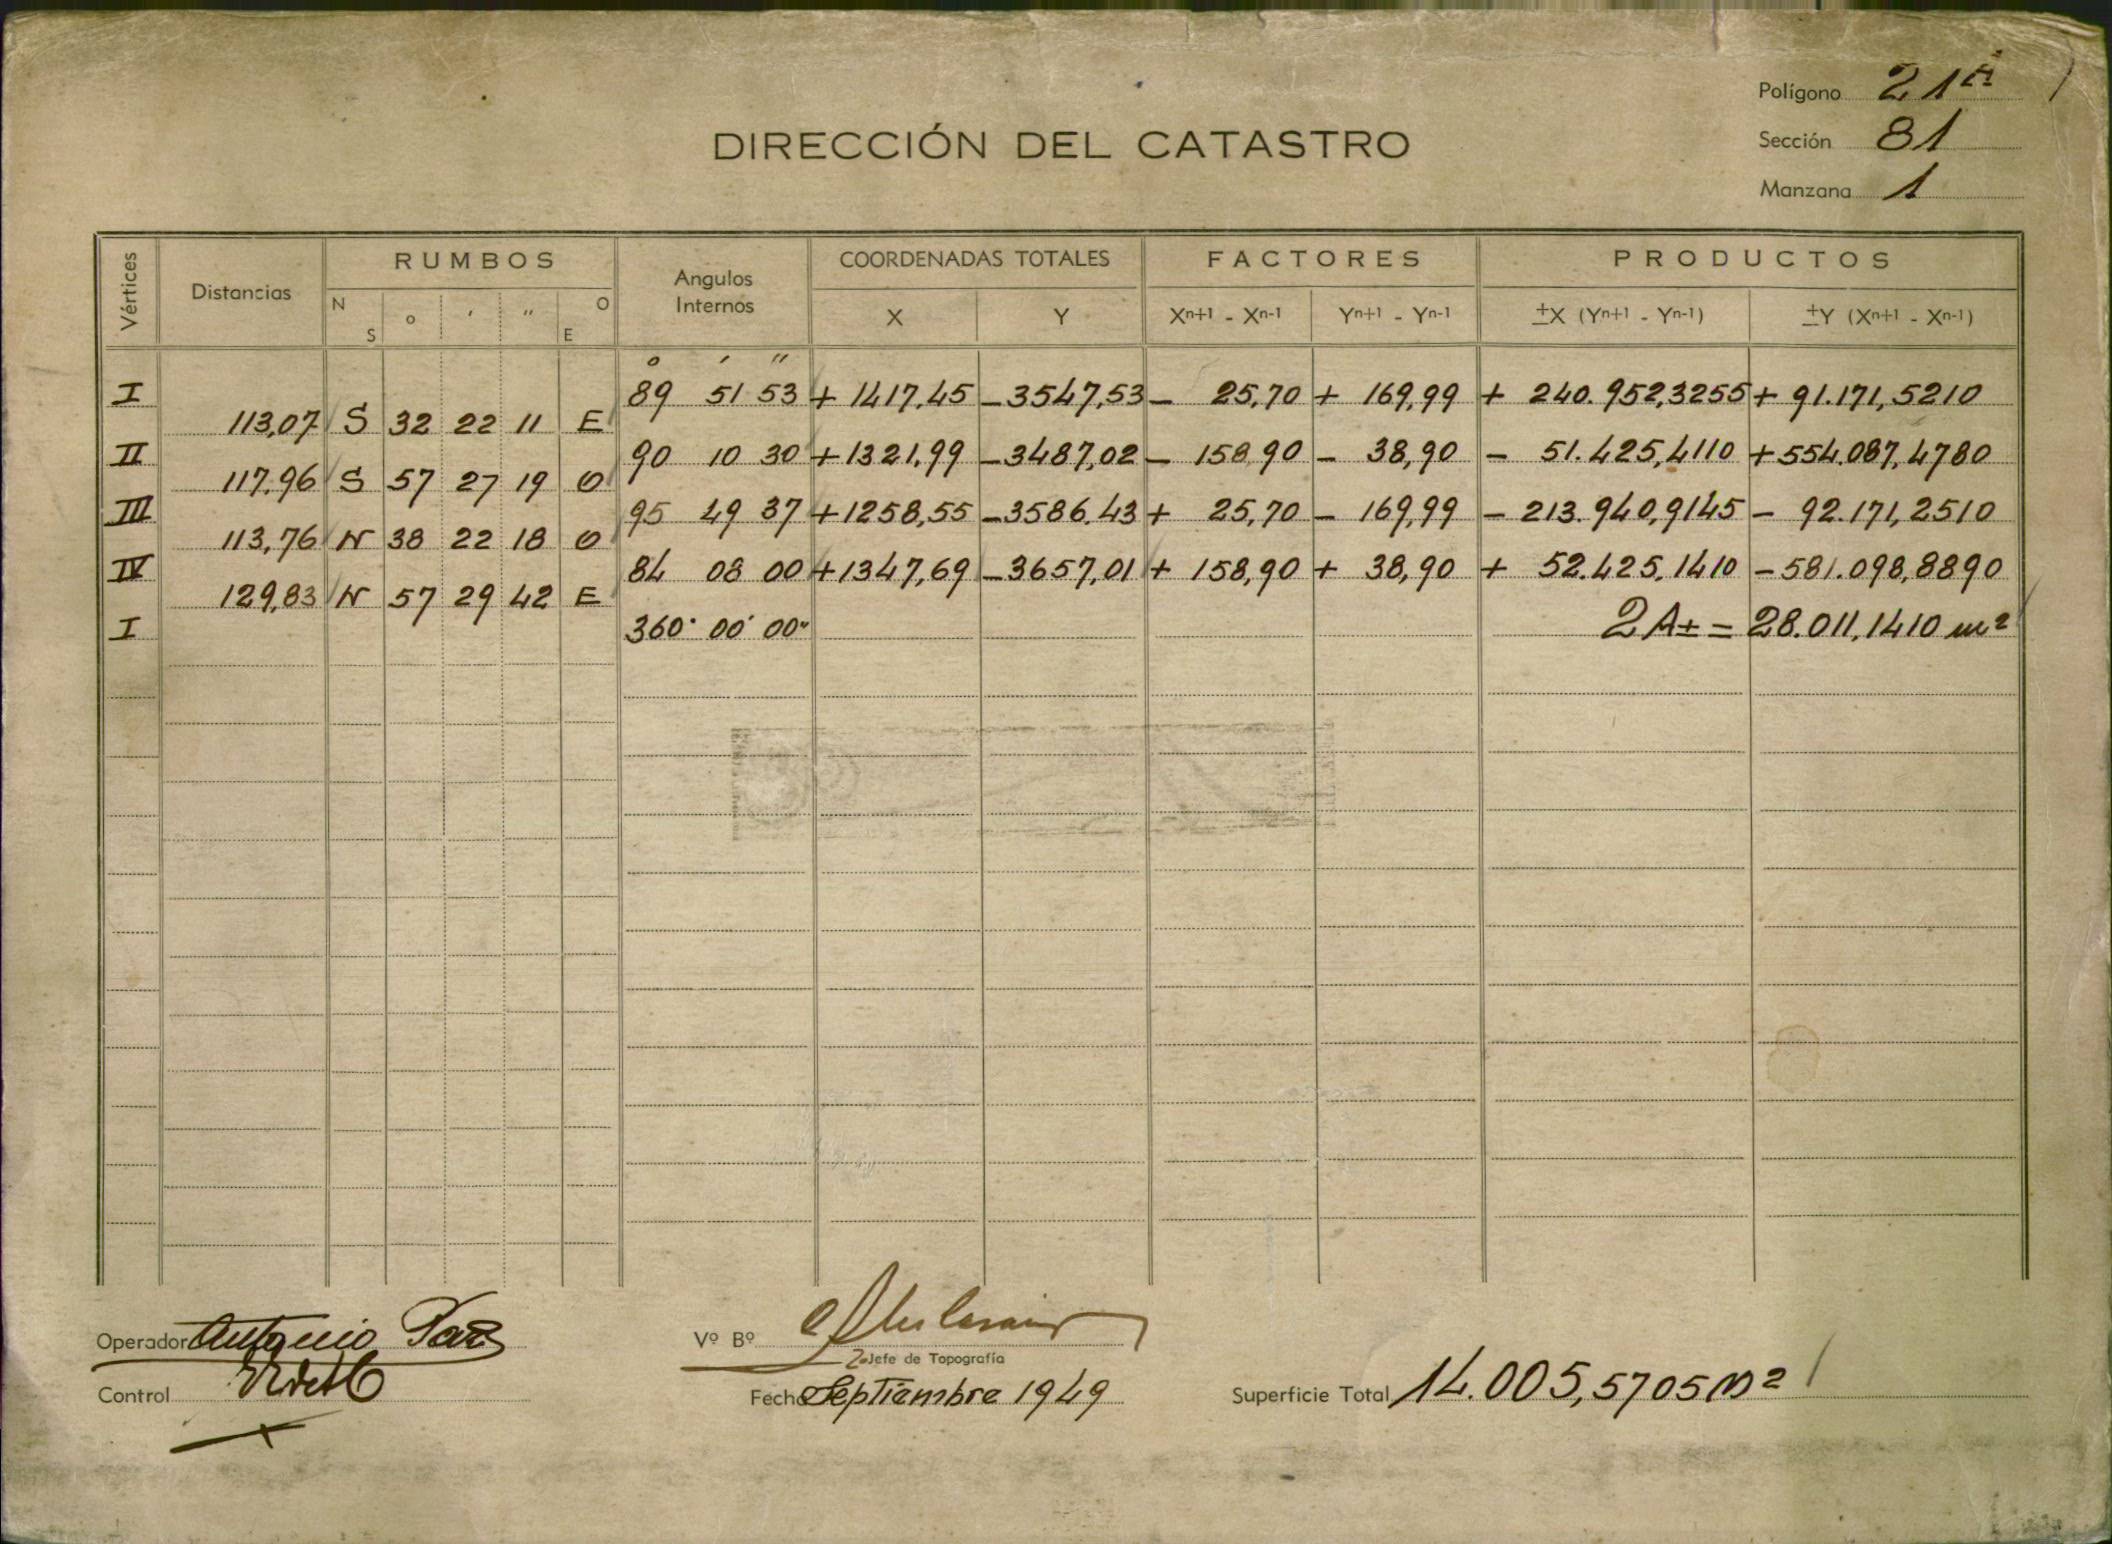 Polígono 21 H
Sección 81
Manzana 1
DIRECCIÓN DEL CATASTRO
Vértices Distancias RUMBOS Angulos Internos COORDENADAS TOTALES FACTORES PRODUCTOS
N S o ' " O E X Y Xn+1 - Xn-1 Yn+1 - Yn-1 ±X (Yn+1 - Yn-1) ±Y (Xn+1 - Xn-1)
o ' "
I 89 51 53 + 1417,45 - 3547,53 - 25,70 + 169,99 + 240.952,3255 + 91.171,5210
113,07 S 32 22 11 E
II 90 10 30 + 1321,99 - 3487,02 - 158,90 - 38,90 - 51.425,4110 + 554.087,4780
117,96 S 57 27 19 O
III 95 49 37 + 1258,55 - 3586.43 + 25,70 - 169,99 - 213.940,9145 - 92.171,2510
113,76 N 38 22 18 O
IV 84 08 00 + 1347,69 - 3657,01 + 158,90 + 38,90 + 52.425,1410 - 581.098,8890
129,83 N 57 29 42 E
I 360° 00' 00" 2A± = 28.011,1410 m²
Operador Antonio Paz
Vº Bº
Jefe de Topografía
Control
Fecha Septiembre 1949
Superficie Total 14.005,5705 m²